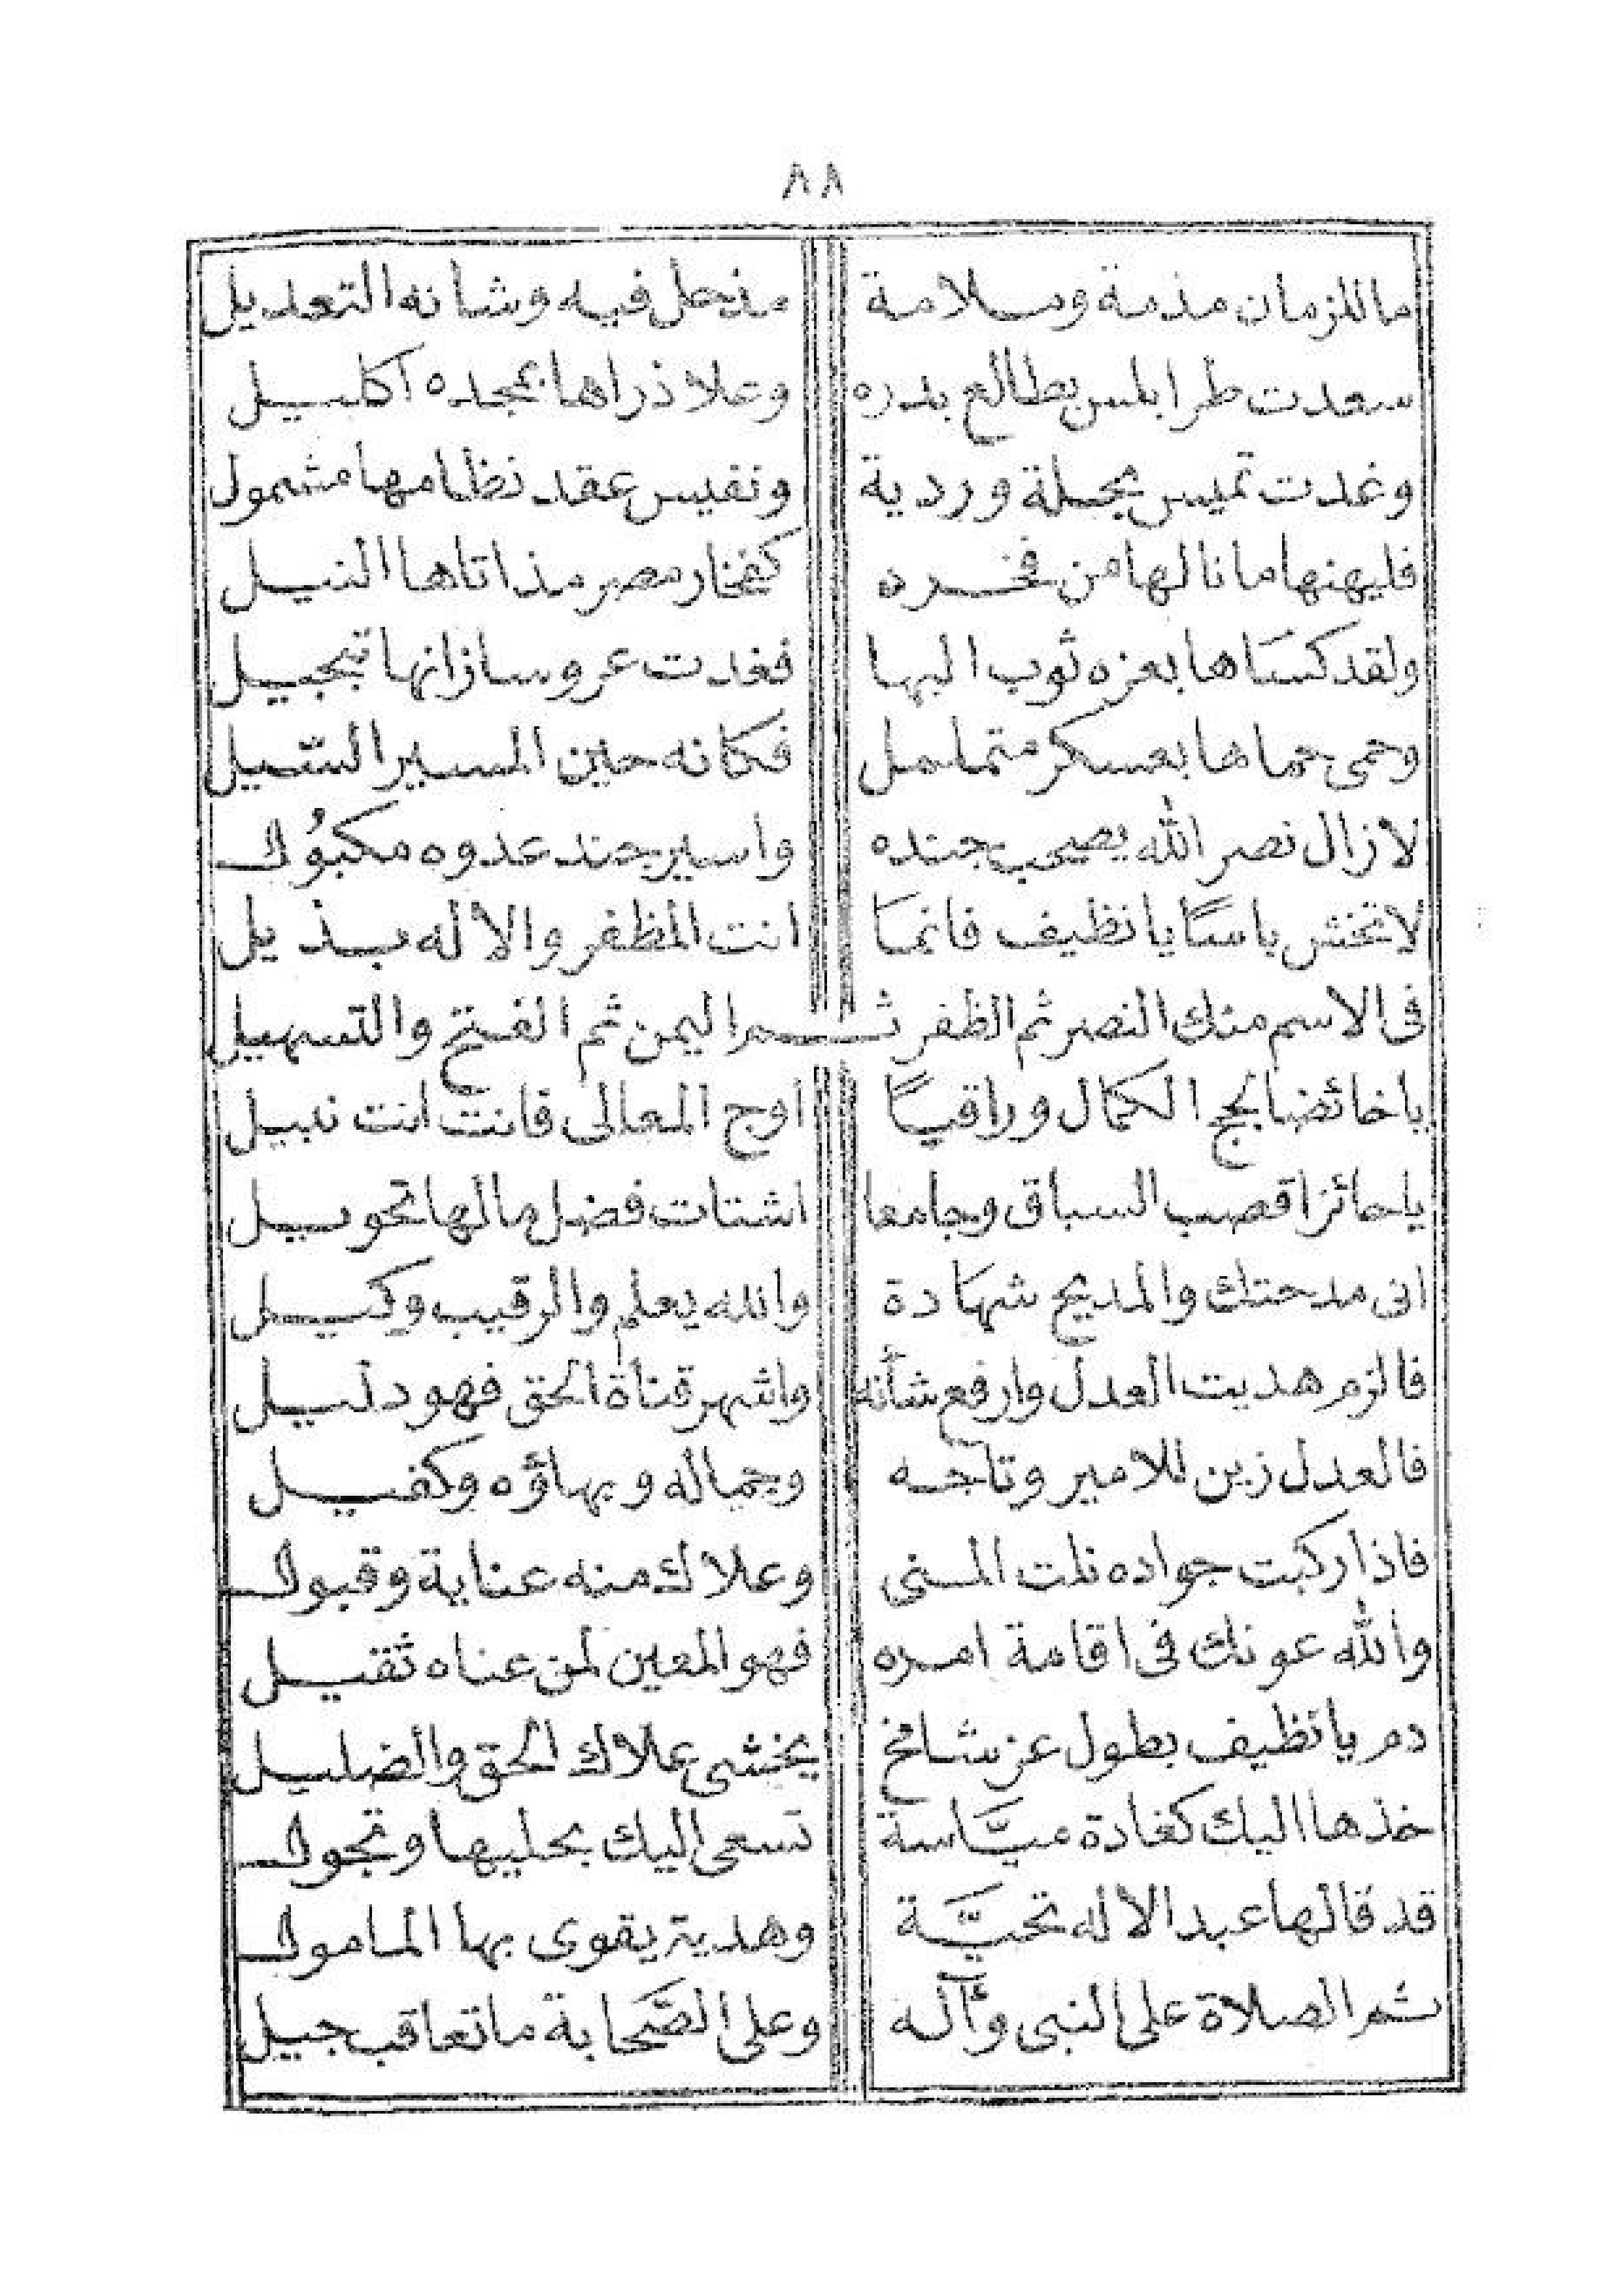 ٨٨
ما للزمان مذمة وسلامة مذحل فيه وشانه التعديل
سعدت طرابلس بطالع بدره وعلا ذراها بمجده اكليل
وغدت تميس بحلة وردية ونفيس عقد نظامها مشمول
فليهنها ما نالها من فخره كفخار مصر مذ اتاها النيل
ولقد كسَاها بعزه ثوب البها فغدت عروسا زانها تبجيل
وحمى حماها بعسكر متململ فكانه حين المسير السيل
لازال نصر الله يصحب جنده واسير جند عدوه مكبُول
لا تخش باسًا يا نظيف فانمَا انت المظفر والاله بذيل
فى الاسم منك النصر ثم الظفر ثم اليمن ثم الفتح والتسهيل
ياخائضا لجج الكمال وراقيًا اوج المعالى فانت انت نبيل
ياحائزا قصب السباق وجامعا اشتات فضل مالها تحويل
انى مدحتك والمديح شهَادة والله يعلم والرقيب وكيل
فالزم هديت العدل وارفع شأنه واشهر قناة الحق فهو دليل
فالعدل زين للامير وتاجه وجماله وبهاؤه وكفيل
فاذا ركبت جواده نلت المنى وعلاك منه عناية وقبول
والله عونك فى اقامة امره فهو المعين لمن عناه ثقيل
دم يا نظيف بطول عز شامخ يخشى علاك الحق والضليل
خذها اليك كغادة ميَّاسة تسعى اليك بحليها وتجول
قد قالها عبد الاله تحيَّة وهدية يقوى بها المامول
ثم الصلاة على النبى وآله وعلى الصَّحابة ما تعاقب جيل